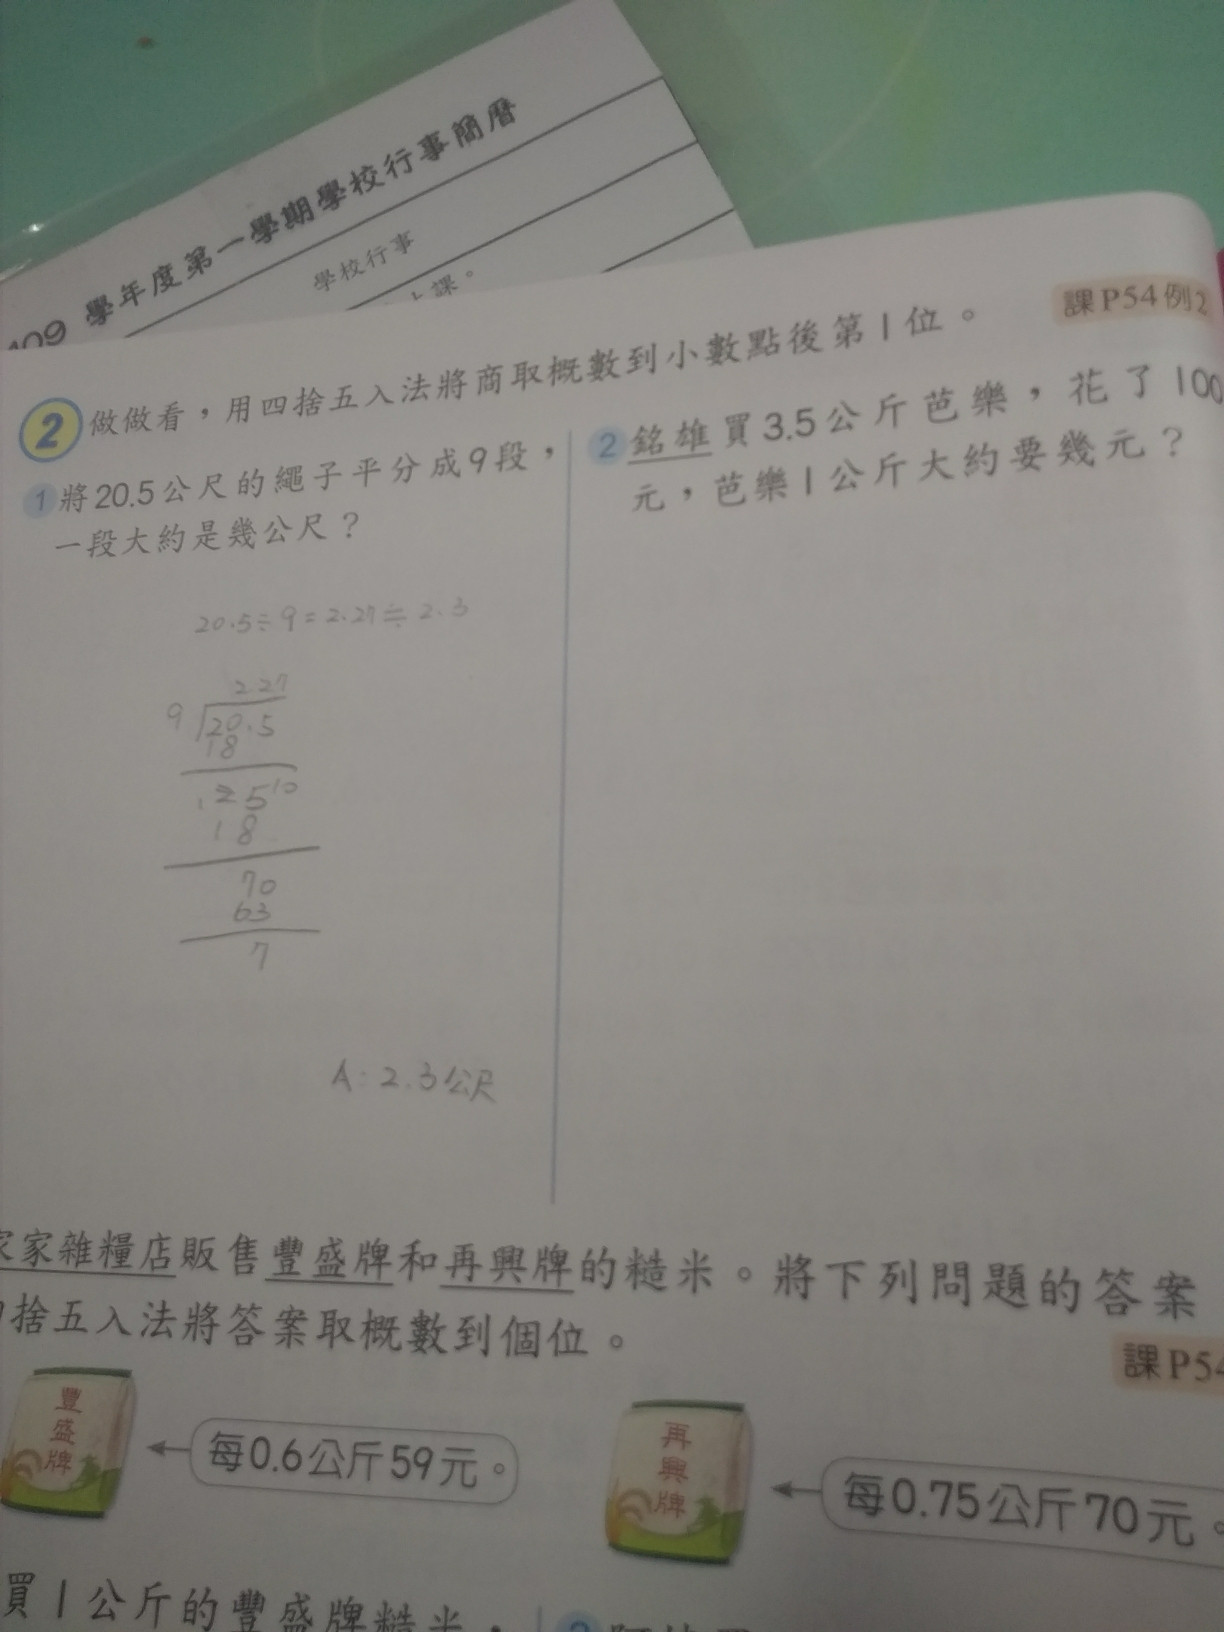 109 學年度第一學期學校行事簡曆
學校行事
上課。
課P54例2
2 做做看，用四捨五入法將商取概數到小數點後第1位。
1 將20.5公尺的繩子平分成9段，
一段大約是幾公尺？
20.5÷9=2.27≒2.3
2.27
9
20.5
18
2510
18
70
63
7
A:2.3公尺
2 銘雄買3.5公斤芭樂，花了100
元，芭樂1公斤大約要幾元？
家家雜糧店販售豐盛牌和再興牌的糙米。將下列問題的答案
捨五入法將答案取概數到個位。
課P54
豐盛牌
每0.6公斤59元。
再興牌
每0.75公斤70元。
買1公斤的豐盛牌糙米，
2